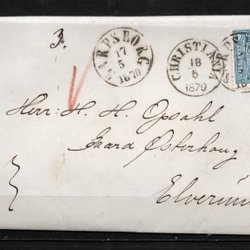 3.
SARPSBORG
17
5
1870
CHRISTIANIA
18
5
1870
Herr H. H. Opsahl
Gaard Østerhoug
Elverum